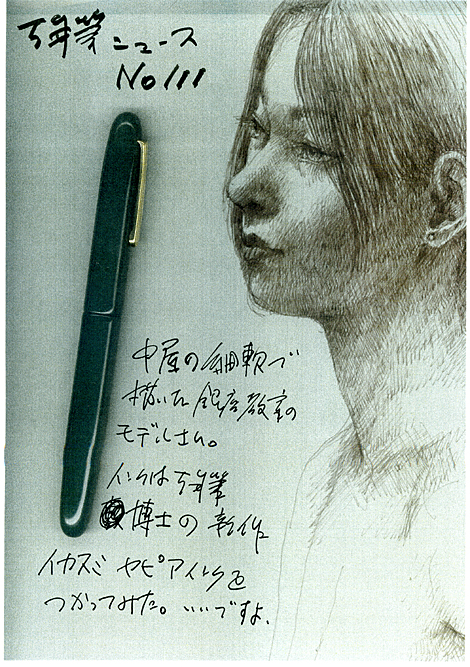 万年筆ニュース
No 111
中屋の細軟で
描いた銀座教室の
モデルさん。
インクは万年筆
博士の新作
イカスミセピアインクを
つかってみた。いいですよ。